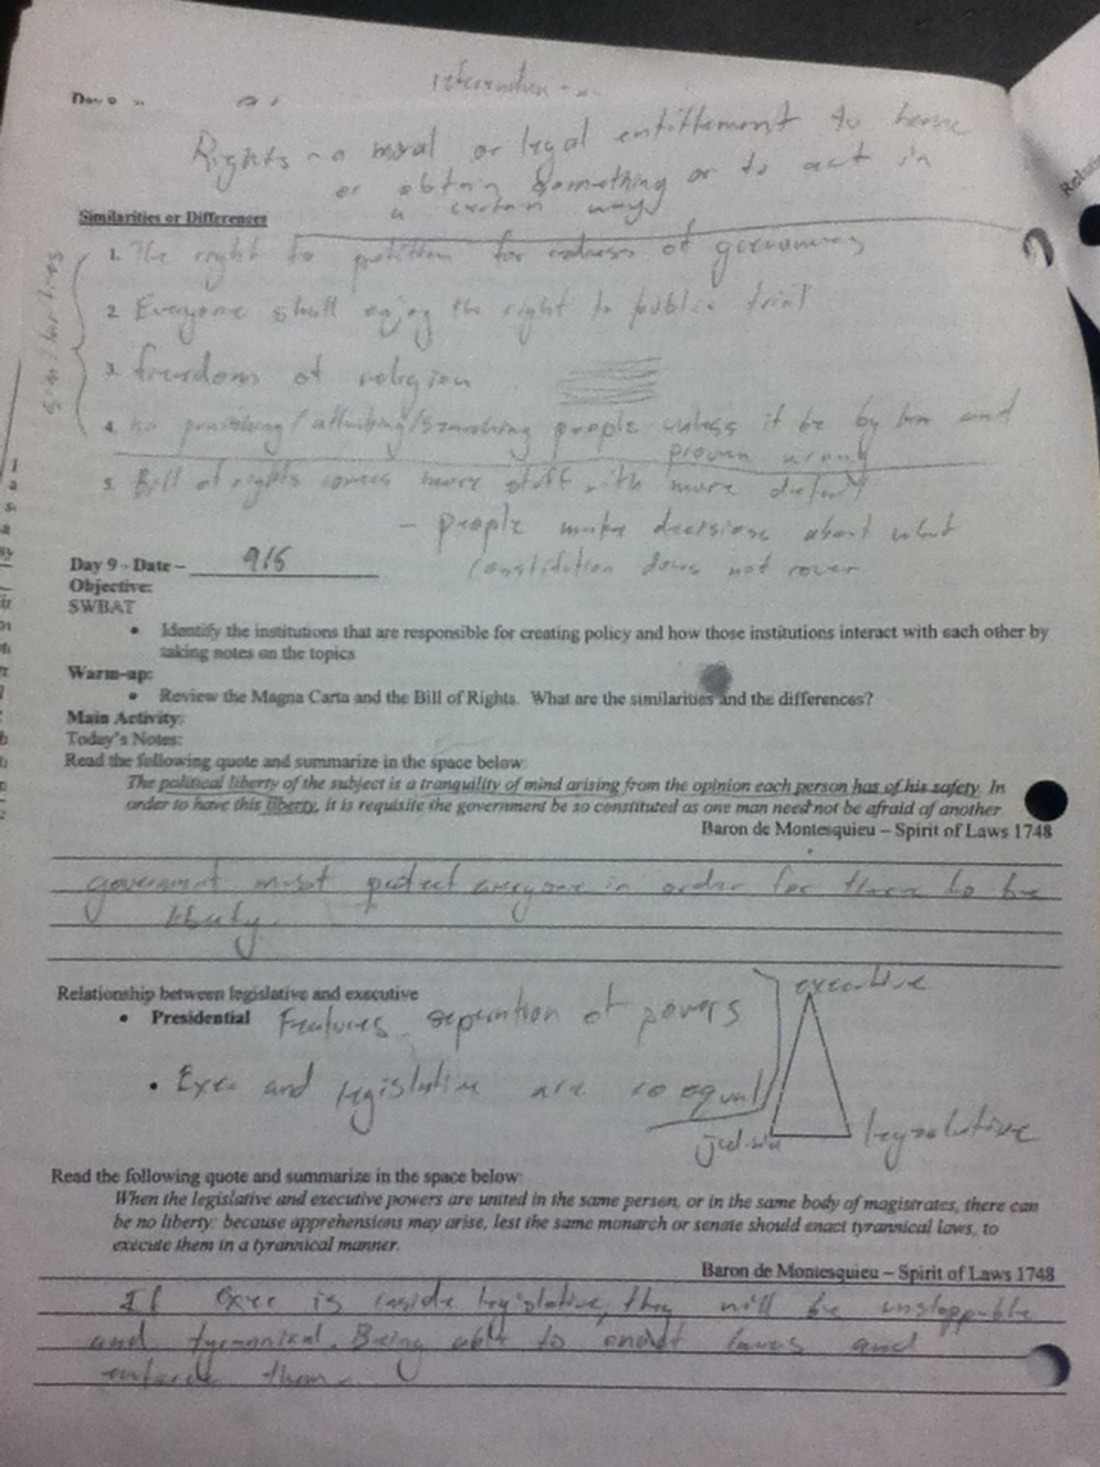 Rights - a moral or legal entitlement to have
or obtain something or to act in
a certain way
Similarities or Differences
similarities
1. The right to petition for redress of
2. Everyone shall enjoy the right to public trial
3. freedom of religion
4. no punishing / / people unless it be by law and
proven wrong
5. Bill of rights covers more stuff with more detail
- people make decisions about what
constitution does not cover
Day 9 - Date - 9/5
Objective:
SWBAT
• Identify the institutions that are responsible for creating policy and how those institutions interact with each other by
taking notes on the topics
Warm-up:
• Review the Magna Carta and the Bill of Rights. What are the similarities and the differences?
Main Activity:
Today's Notes:
Read the following quote and summarize in the space below:
The political liberty of the subject is a tranquility of mind arising from the opinion each person has of his safety. In
order to have this liberty, it is requisite the government be so constituted as one man need not be afraid of another
Baron de Montesquieu – Spirit of Laws 1748
government must protect everyone in order for there to be
liberty.
executive
Relationship between legislative and executive
• Presidential Features separation of powers
• Exec and legislative are co equal
legislative
Read the following quote and summarize in the space below:
When the legislative and executive powers are united in the same person, or in the same body of magistrates, there can
be no liberty; because apprehensions may arise, lest the same monarch or senate should enact tyrannical laws, to
execute them in a tyrannical manner.
Baron de Montesquieu – Spirit of Laws 1748
If Exec is inside legislative, they will be unstoppable
and tyrannical. Being able to enact laws and
enforce them.